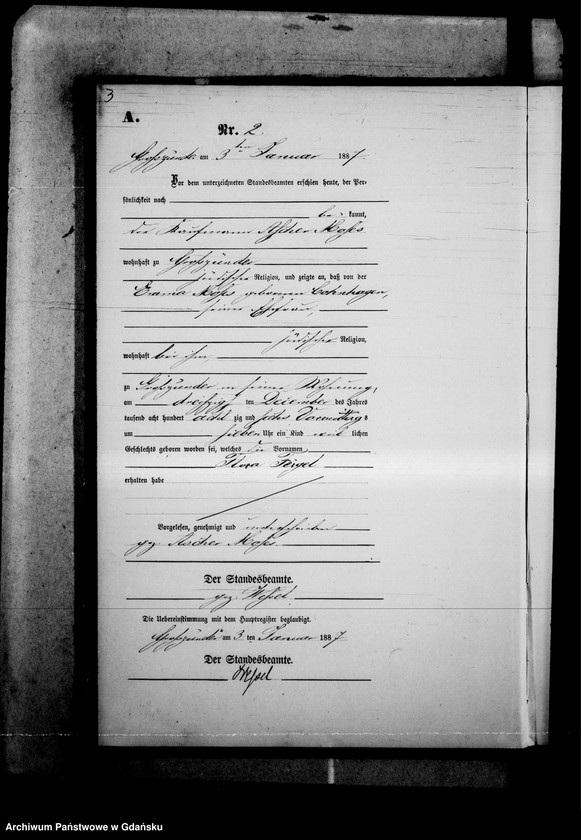 3
A.
Nr. 2.
Großzünder am 3ten Januar 1887
Vor dem unterzeichneten Standesbeamten erschien heute, der Per-
sönlichkeit nach
be kannt,
der Kaufmann Ascher Moses
wohnhaft zu Großzünder
jüdischer Religion, und zeigte an, daß von der
Moses geborenen Cohnhagen,
seiner Ehefrau,
jüdischer Religion,
wohnhaft bei ihm,
zu Großzünder in seiner Wohnung,
am dreißigsten Dezember des Jahres
tausend acht hundert acht zig und sechs Vormittags
um sieben Uhr ein Kind weib lichen
Geschlechts geboren worden sei, welches die Vornamen
Flora
erhalten habe
Vorgelesen, genehmigt und unterschrieben
gez. Ascher Moses.
Der Standesbeamte.
gez. Wessel.
Die Uebereinstimmung mit dem Hauptregister beglaubigt.
Großzünder am 3 ten Januar 1887
Der Standesbeamte.
Wessel
Archiwum Państwowe w Gdańsku